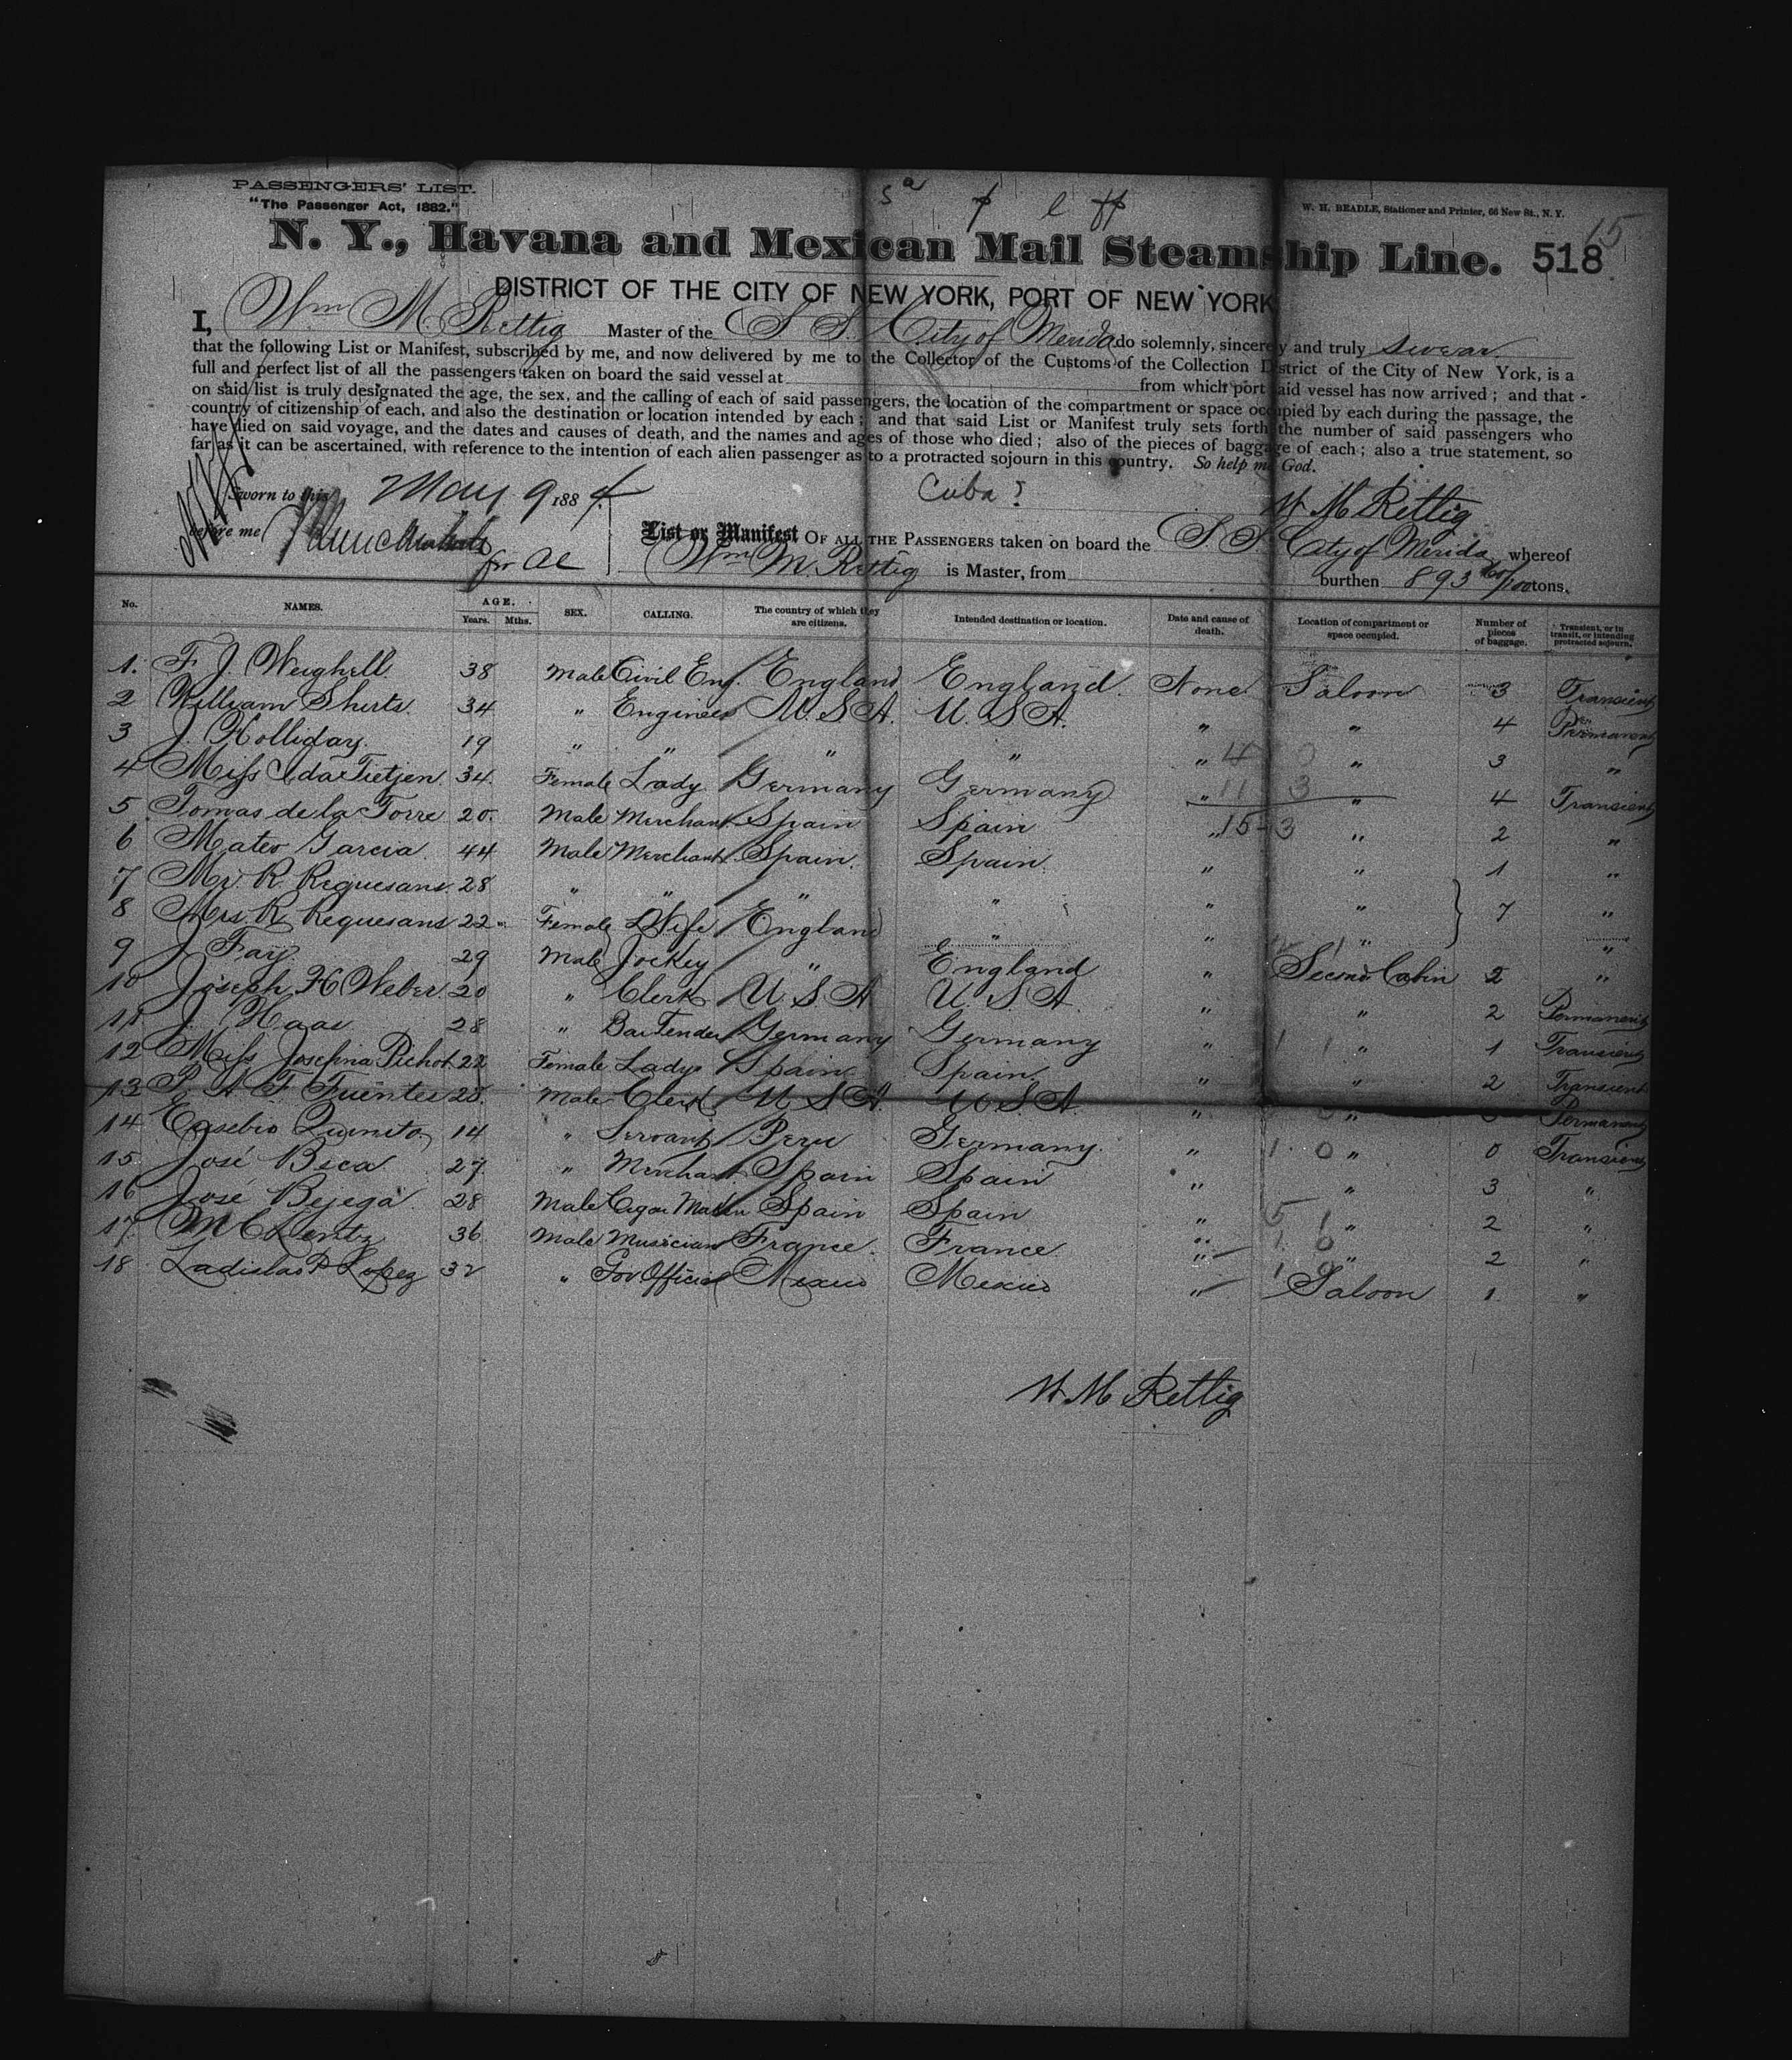 PASSENGERS' LIST.
"The Passenger Act, 1882."
W. H. BEADLE, Stationer and Printer, 66 New St., N. Y.
15
N. Y., Havana and Mexican Mail Steamship Line. 518
DISTRICT OF THE CITY OF NEW YORK, PORT OF NEW YORK
I, Wm M. Rettig Master of the S S. City of Merida do solemnly, sincerely and truly swear
that the following List or Manifest, subscribed by me, and now delivered by me to the Collector of the Customs of the Collection District of the City of New York, is a
full and perfect list of all the passengers taken on board the said vessel at from which port said vessel has now arrived ; and that
on said list is truly designated the age, the sex, and the calling of each of said passengers, the location of the compartment or space occupied by each during the passage, the
country of citizenship of each, and also the destination or location intended by each ; and that said List or Manifest truly sets forth the number of said passengers who
have died on said voyage, and the dates and causes of death, and the names and ages of those who died ; also of the pieces of baggage of each ; also a true statement, so
far as it can be ascertained, with reference to the intention of each alien passenger as to a protracted sojourn in this country. So help me God.
Sworn to this May 9 1884 Cuba? W M Rettig
before me
List or Manifest OF ALL THE PASSENGERS taken on board the S. S. City of Merida whereof
Wm M. Rettig is Master, from burthen 893 tons.
No. NAMES. AGE. Years. Mths. SEX. CALLING. The country of which they are citizens. Intended destination or location. Date and cause of death. Location of compartment or space occupied. Number of pieces of baggage. Transient, or in transit, or intending protracted sojourn.
1. F. J. Weighell. 38 Male Civil Eng. England England. None Saloon 3 Transient
2 William Shirts. 34 " Engineer U. S A. U. S A. " " 4 Permanent
3 J. Holliday. 19 " " " " " " 3 "
4 Miss Ida Tietjen. 34. Female Lady Germany Germany " " 4 Transient
5 Tomas de la Torre 20. Male Merchant Spain Spain " " 2 "
6 Mateo Garcia 44 Male Merchant Spain. Spain. " " 1 "
7 Mr. R. Requesans. 28 " " " " " " 7 "
8 Mrs. R. Requesans 22 Female Wife England " " " "
9 J Fay. 29 Male Jockey " England " Second Cabin 2 "
10 Joseph H Weber. 20 " Clerk U. S A U. S A " " 2 Permanent
11 J. Haas 28 " Bar Tender Germany Germany " " 1 Transient
12 Miss Josefina Pichot 22 Female Lady Spain Spain. " " 2 Transient
13 A F. Fuentes 28. Male Clerk U S A. U S A. " " Permanent
14 Eusebio 14 " Servant Peru Germany. " " 0 Transient
15 José Beca 27 " Merchant Spain Spain " " 3 "
16 José Bejega 28 Male Cigar Maker Spain Spain " " 2 "
17. M C Lentz 36 Male Musician France. France " " 2 "
18 Ladislao P Lopez 32 " Gov Official Mexico Mexico " Saloon 1 "
W M Rettig